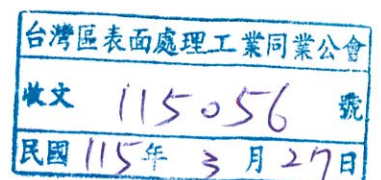 台灣區表面處理工業同業公會
收文 115056 號
民國 115年 3 月 27日